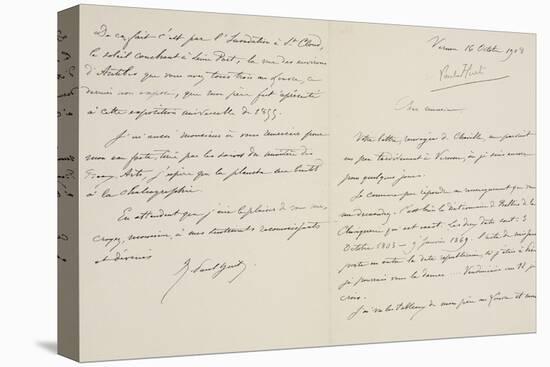 De ce fait c'est par l'Inondation à St Cloud,
le soleil couchant à Seine Port, la vue des environs
d'Antibes que vous avez tous trois au Louvre, ce
dernier non exposé, que mon père fut représenté
à cette exposition universelle de 1855.
J'ai aussi monsieur à vous remercier pour
mon eau forte, tirée par les soins du musée des
Beaux Arts, j'espère que la planche au
à la chalcographie.
En attendant que j'aie le plaisir de vous
croyez, monsieur, à mes sentiments reconnaissants
et dévoués
R. Paul Huet
Vernon 16 Octobre 1908
Paul Huet
Cher monsieur
Votre lettre, renvoyée de Chaville, me parvient
un peu tardivement à Vernon, où je suis encore
pour quelques jours.
Je commence par répondre au renseignement que vous
me demandez. C'est bien le dictionnaire de Bellier de la
Chavignerie qui est exact. Les deux dates sont : 3
Octobre 1803 – 9 janvier 1869. l'acte de mon père
porte en outre la date républicaine, si j'étais à
je pourrais vous la donner ... Vendémiaire an XI je
crois.
J'ai vu les tableaux de mon père au Louvre et